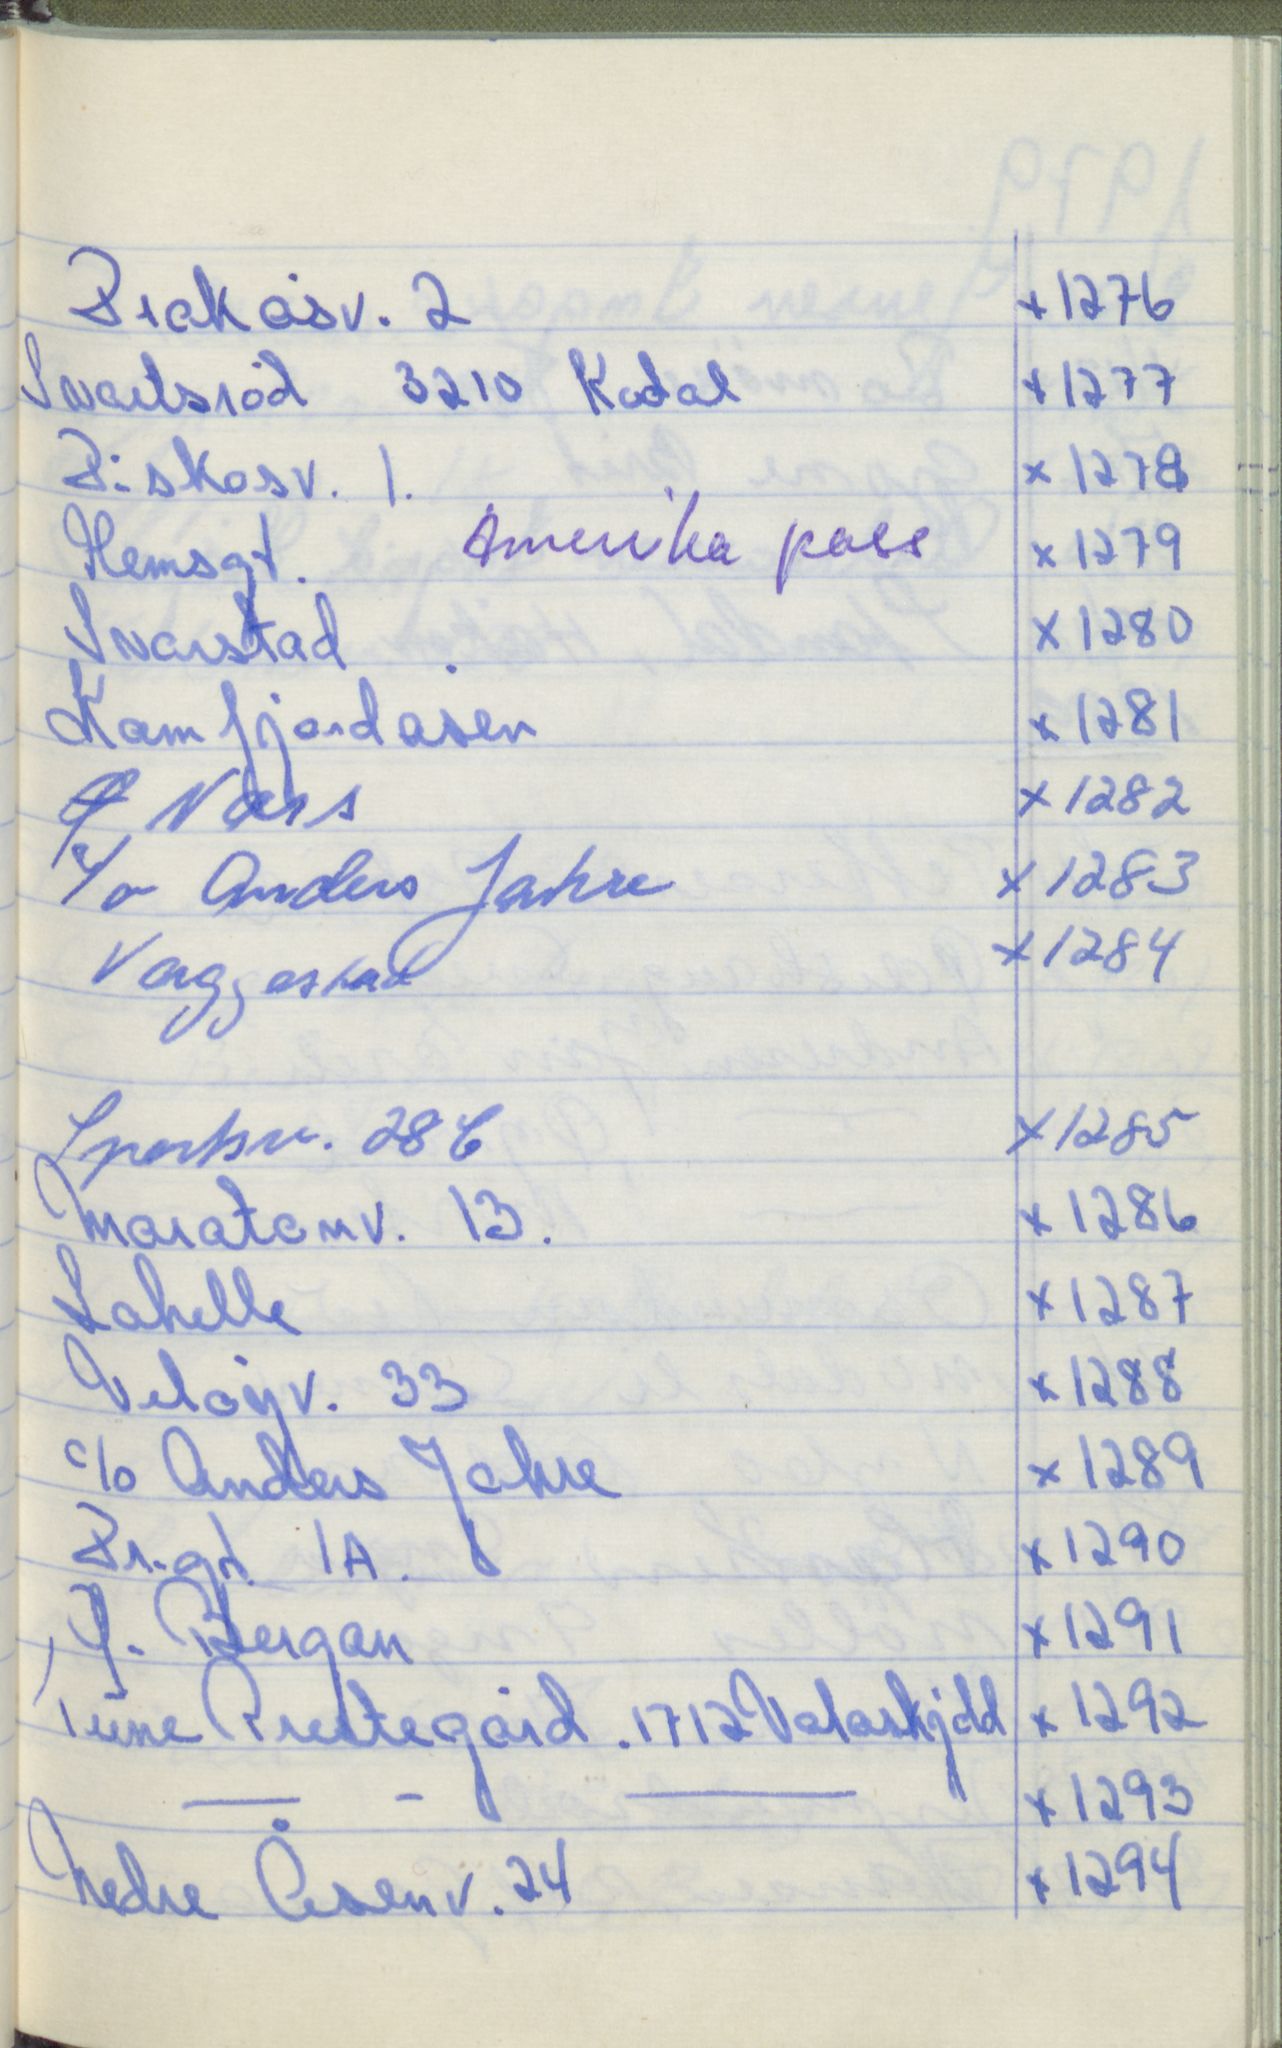 Brekåsv. 2 x 1276
Svartsrød 3210 Kodal x 1277
Diskosv. 1. x 1278
Hemsgt. Amerika pass x 1279
Svarstad x 1280
Kamfjordåsen x 1281
Ø Nærs x 1282
c/o Anders Jahre x 1283
Varggestad x 1284
Sportsv. 28 x 1285
Maratonv. 13. x 1286
Lahelle x 1287
Veløyv. 33 x 1288
c/o Anders Jahre x 1289
Dr.gt. 1A. x 1290
Ø. Bergan x 1291
Tune Prestegård . 1712 Valaskjold x 1292
— - — x 1293
Nedre Åsenv. 24 x 1294